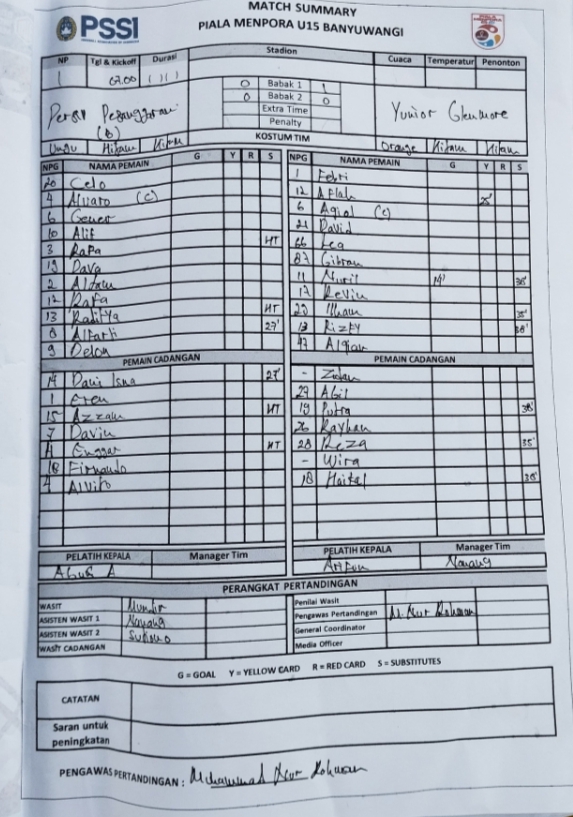 PSSI
MATCH SUMMARY
PIALA MENPORA U15 BANYUWANGI
NP Tgl & Kickoff Durasi Stadion Cuaca Temperatur Penonton
1 07.00
0 Babak 1 1
0 Babak 2 0
Extra Time
Penalty
(B) Yunior Glenmore
KOSTUM TIM
Ungu Hitam Hitam Orange Hitam Hitam
NPG NAMA PEMAIN G Y R S NPG NAMA PEMAIN G Y R S
20 Celo 1 Febri
4 Alvaro (C) 12 Aflah
6 6 (C)
10 Alif 21 David
3 Rafa HT 66
19 Dava 87 Gibran
2 11 Nuril 14' 38'
12 Rafa 17 Kevin
13 Raditya HT 23 Ilham 35'
8 Alfarli 27' 13 Rizky 38'
9 Delon 47
PEMAIN CADANGAN PEMAIN CADANGAN
14 27' - Zidan
1 Eren 29 Abil
15 Azzam HT 19 Putra 38'
7 Davin 26 Rayhan
Enggar HT 28 Reza 35'
18 Firnando - Wira
Alvito 18 Haikal 38'
PELATIH KEPALA Manager Tim PELATIH KEPALA Manager Tim
Agus A Nanang
PERANGKAT PERTANDINGAN
WASIT Penilai Wasit
ASISTEN WASIT 1 Nanang Pengawas Pertandingan M. Nur Rohman
ASISTEN WASIT 2 General Coordinator
WASIT CADANGAN Media Officer
G = GOAL Y = YELLOW CARD R = RED CARD S = SUBSTITUTES
CATATAN
Saran untuk
peningkatan
PENGAWAS PERTANDINGAN : Mohammad Nur Rohman